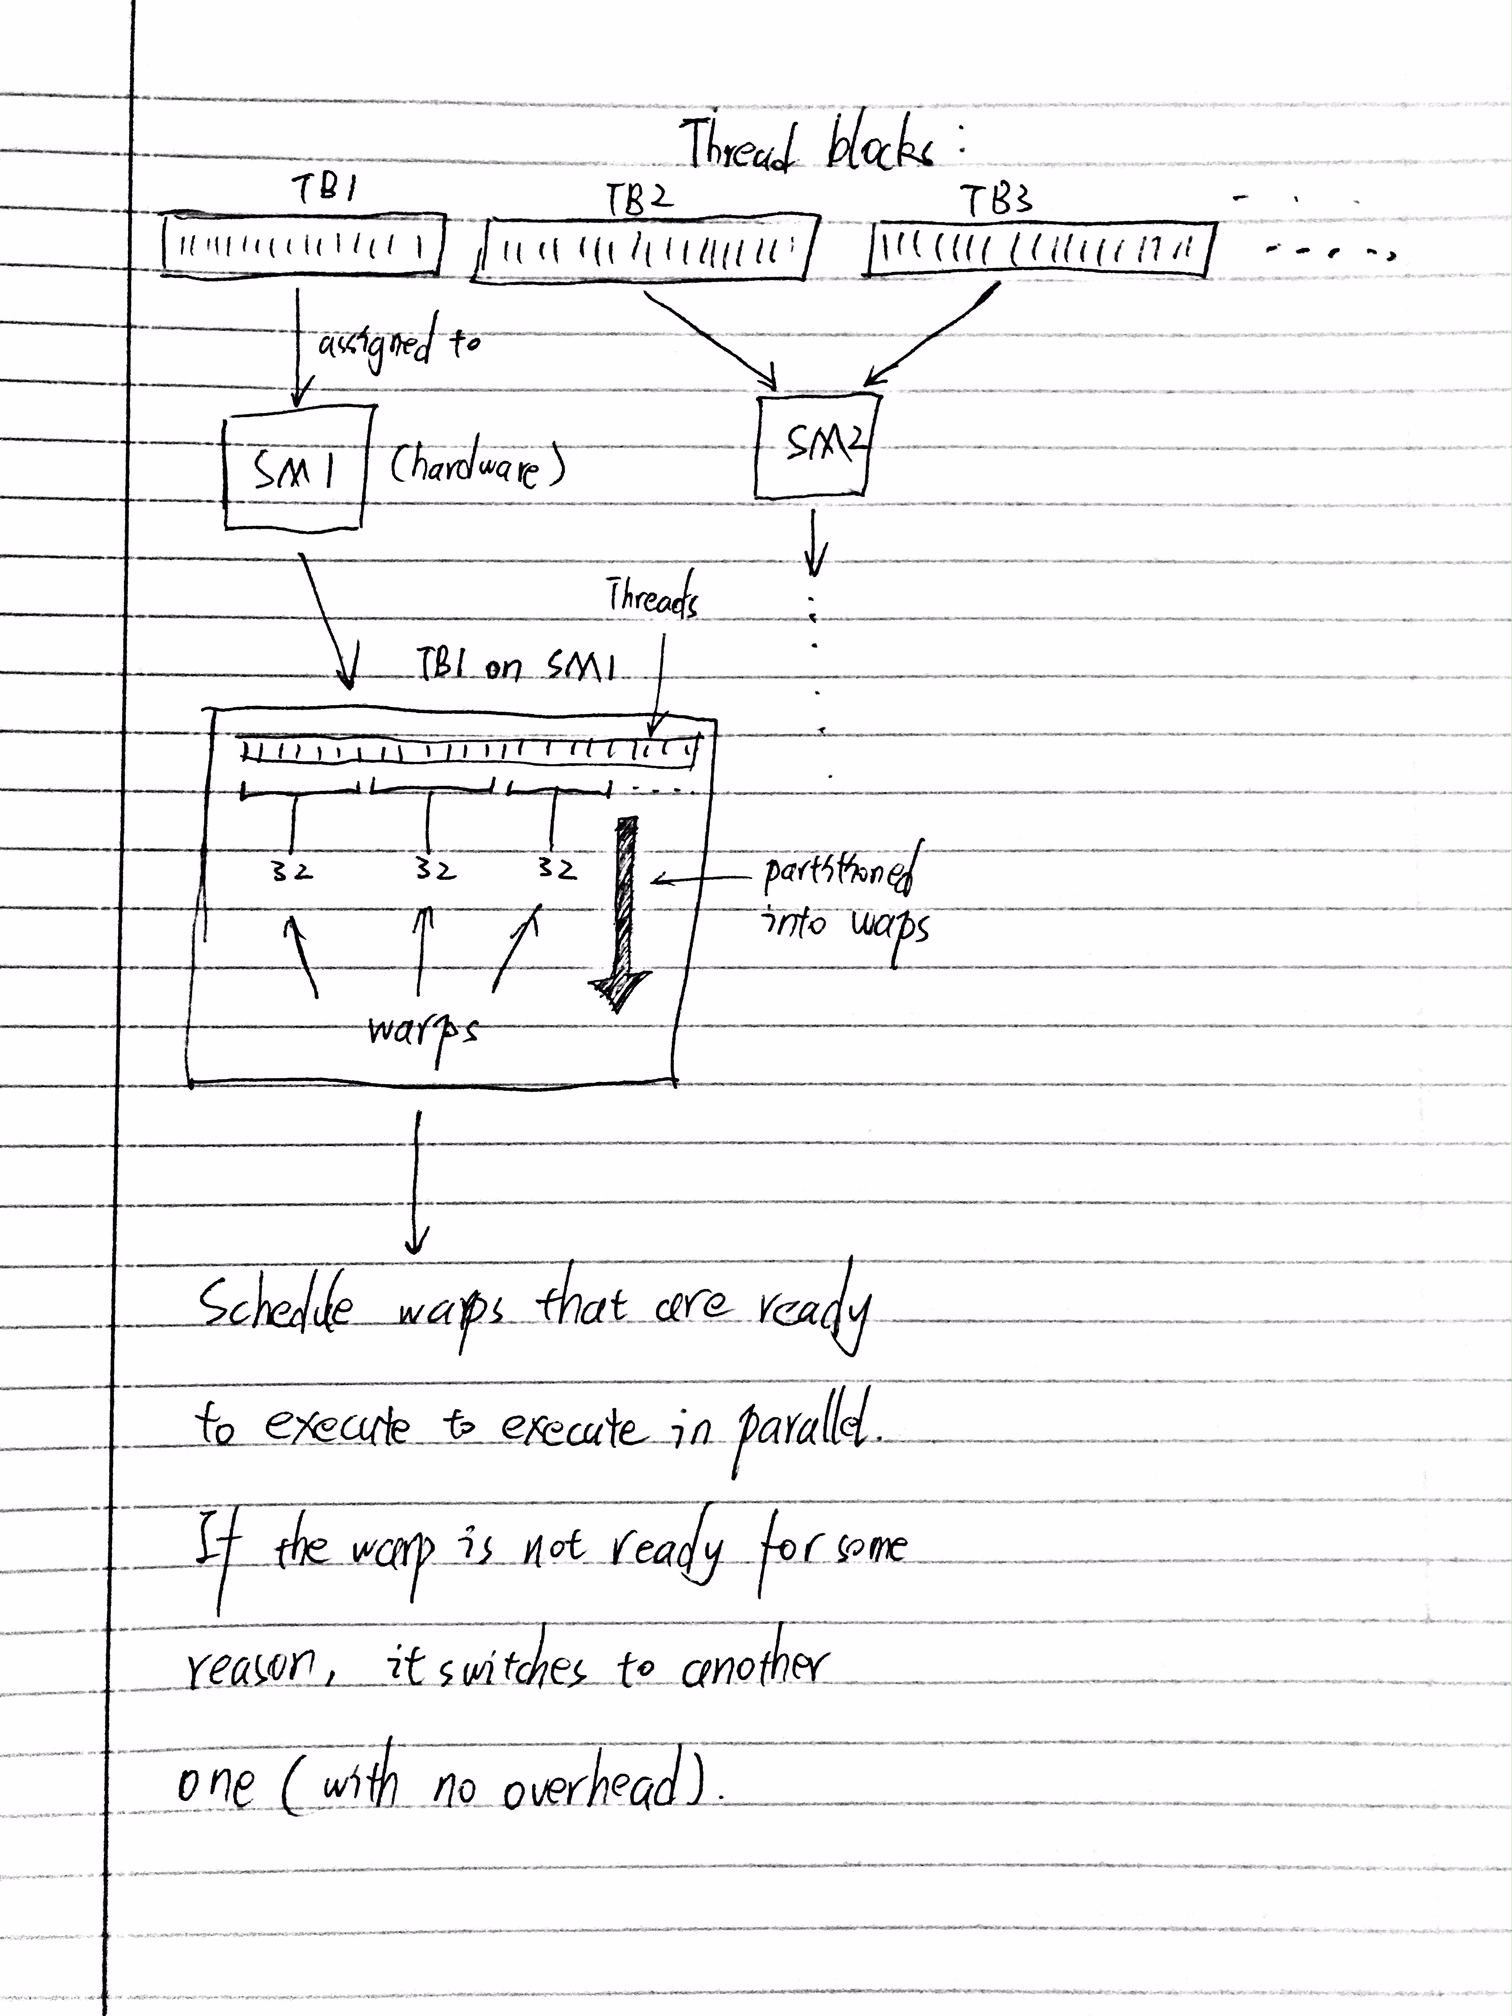 Thread blocks:
TB1 TB2 TB3
assigned to
SM1 (hardware) SM2
Threads
TB1 on SM1
32 32 32
partitioned
into waps
warps
Schedule warps that are ready
to execute to execute in parallel.
If the warp is not ready for some
reason, it switches to another
one (with no overhead).